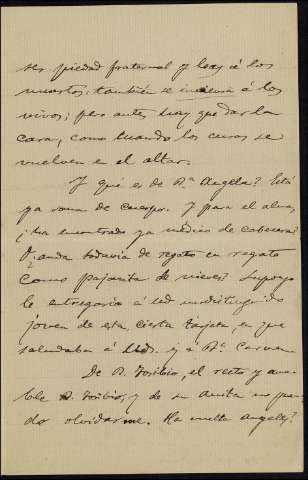 ser piedad fraternal y leay á los
muertos; también se inciensa á los
vivos; pero antes hay que dar la
cara, como cuando los curas se
vuelven en el altar.
Y qué es de Dª Angela? Está
ya sana de cuerpo. Y para el alma,
¿ha encontrado ya médico de cabecera?
O ¿anda todavía de regato en regato
como pajarita de nieves? Supongo
le entregaría á Ud un distinguido
joven de esta cierta tarjeta, en que
saludaba á Uds. y á Dª Carmen.
De D. Toribio, el recto y ama-
ble D. Toribio, y de su amita no pue-
do olvidarme. Ha vuelto Angeles?